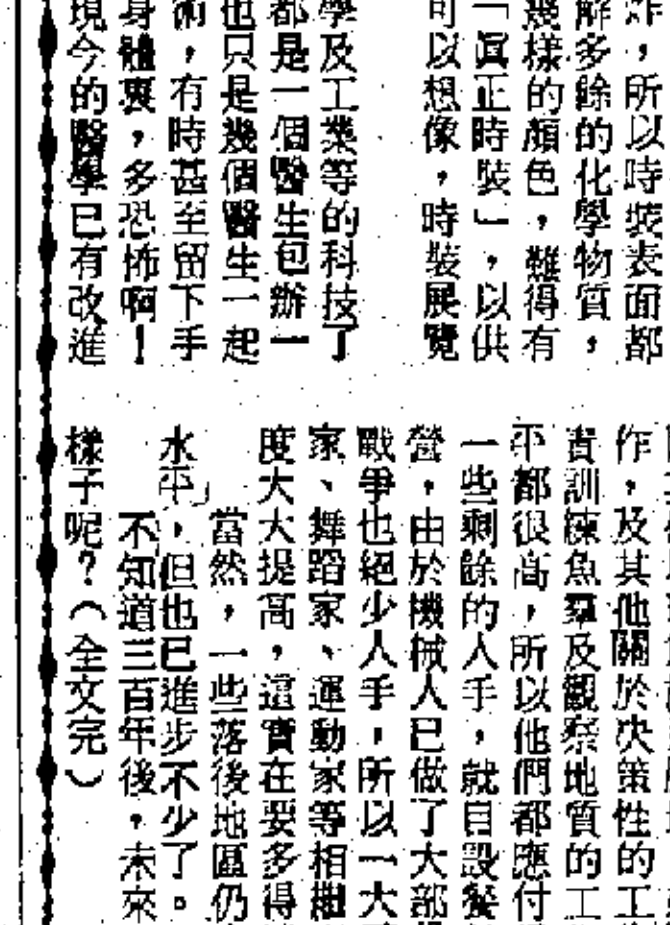 炸，所以時裝表面都
解多餘的化學物質，
幾樣的顏色，難得有
「眞正時裝」，以供
可以想像，時裝展覽
學及工業等的科技了
都是一個醫生包辦一
也只是幾個醫生一起
術，有時甚至留下手
身體裏，多恐怖啊！
現今的醫學已有改進
作，及其他關於决策性的工
責訓練魚羣及觀察地質的工
平都很高，所以他們都應付
一些剩餘的人手，就自設餐
營，由於機械人已做了大部
戰爭也絕少人手，所以一大
家、舞蹈家、運動家等相繼
度大大提高，這實在要多得
當然，一些落後地區仍
水平，但也已進步不少了。
不知道三百年後，未來
樣子呢？（全文完）